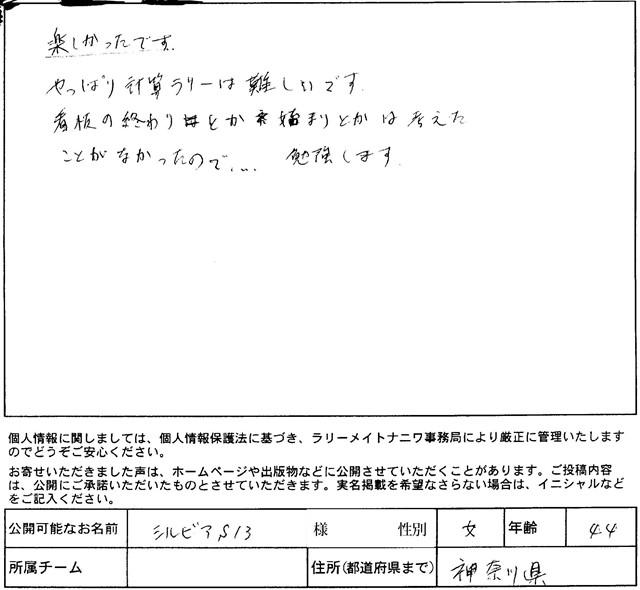 楽しかったです。
やっぱり計算ラリーは難しいです。
看板の終わりとか始まりとかは考えた
ことがなかったので…. 勉強します。
個人情報に関しましては、個人情報保護法に基づき、ラリーメイトナニワ事務局により厳正に管理いたします
のでどうぞご安心ください。
お寄せいただきました声は、ホームページや出版物などに公開させていただくことがあります。ご投稿内容
は、公開にご承諾いただいたものとさせていただきます。実名掲載を希望なさらない場合は、イニシャルなど
をご記入ください。
公開可能なお名前 シルビアS13 様 性別 女 年齢 44
所属チーム 住所(都道府県まで) 神奈川県